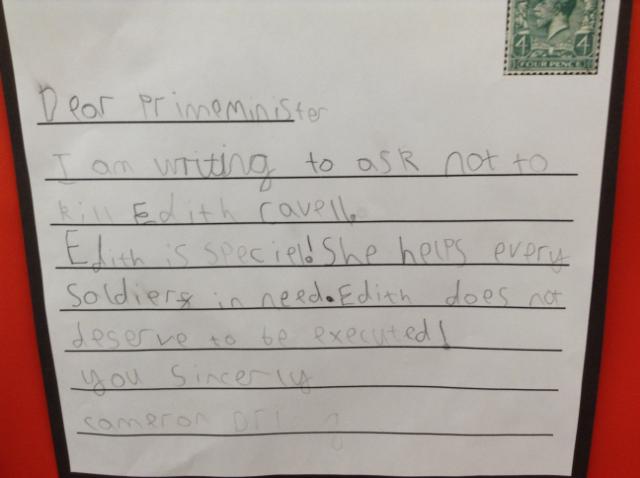 4 4
FOUR PENCE
Dear primeMinister
I am writing to ask not to
kill Edith cavell.
Edith is speciel! She helps every
soldiers in need. Edith does not
deserve to be executed!
you sincerly
cameron